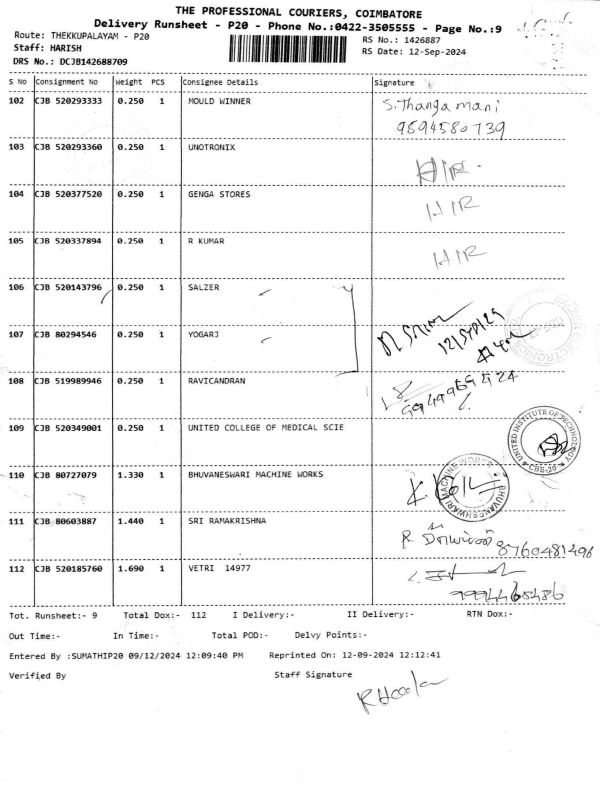 THE PROFESSIONAL COURIERS, COIMBATORE
Delivery Runsheet - P20 - Phone No.:0422-3505555 - Page No.:9
Route: THEKKUPALAYAM - P20
RS No.: 1426887
Staff: HARISH
RS Date: 12-Sep-2024
DRS No.: DCJB142688709
S No Consignment No Weight PCS Consignee Details Signature
102 CJB 520293333 0.250 1 MOULD WINNER S.Thangamani
9894580739
103 CJB 520293360 0.250 1 UNOTRONIX
104 CJB 520377520 0.250 1 GENGA STORES
105 CJB 520337894 0.250 1 R KUMAR
106 CJB 520143796 0.250 1 SALZER
107 CJB 80294546 0.250 1 YOGARJ
108 CJB 519989946 0.250 1 RAVICANDRAN
109 CJB 520349001 0.250 1 UNITED COLLEGE OF MEDICAL SCIE
UNITED INSTITUTE OF TECHNOLOGY
CBE-20
110 CJB 80727079 1.330 1 BHUVANESWARI MACHINE WORKS
BHUVANESHWARI MACHINE WORKS
111 CJB 80603887 1.440 1 SRI RAMAKRISHNA
8760481496
112 CJB 520185760 1.690 1 VETRI 14977
9994465486
Tot. Runsheet:- 9 Total Dox:- 112 I Delivery:- II Delivery:- RTN Dox:-
Out Time:- In Time:- Total POD:- Delvy Points:-
Entered By :SUMATHIP20 09/12/2024 12:09:40 PM Reprinted On: 12-09-2024 12:12:41
Verified By Staff Signature